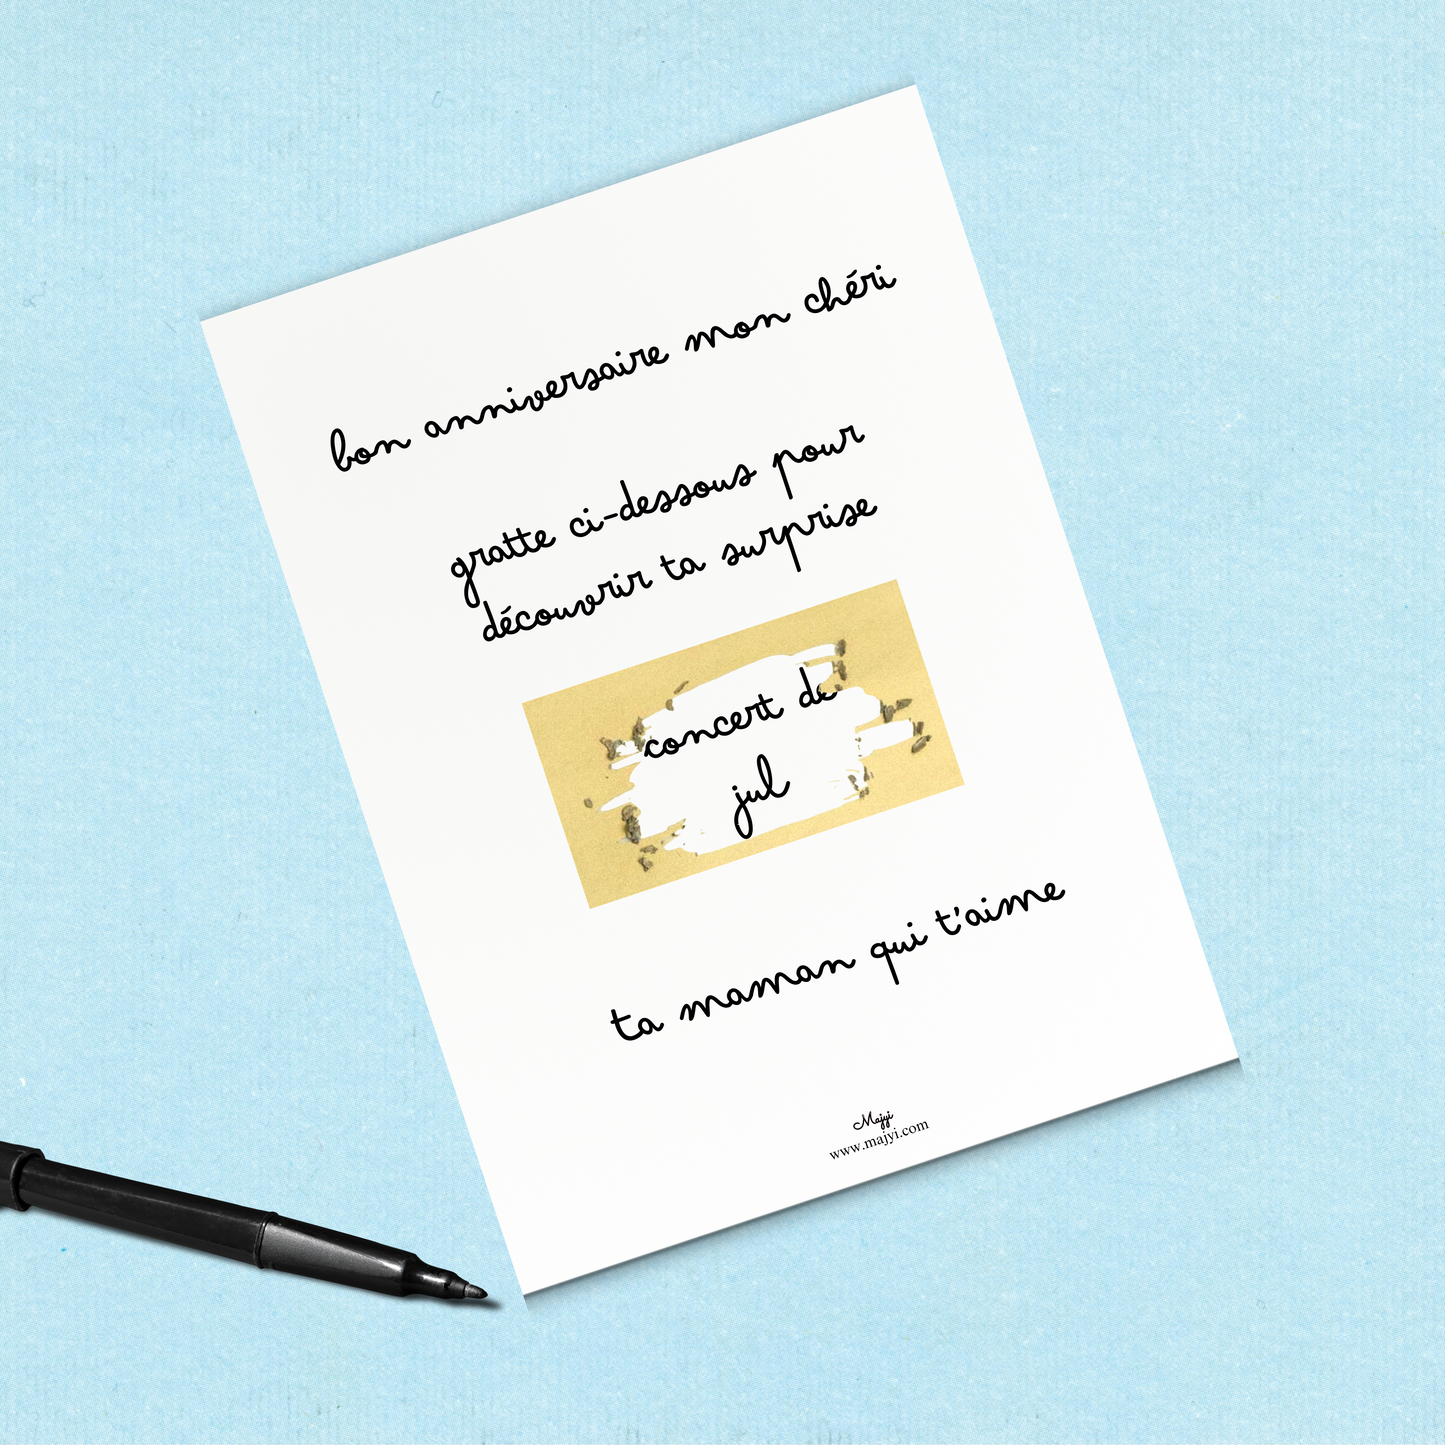 bon anniversaire mon chéri
gratte ci-dessous pour
découvrir ta surprise
concert de
jul
ta maman qui t'aime
Majyi
www.majyi.com